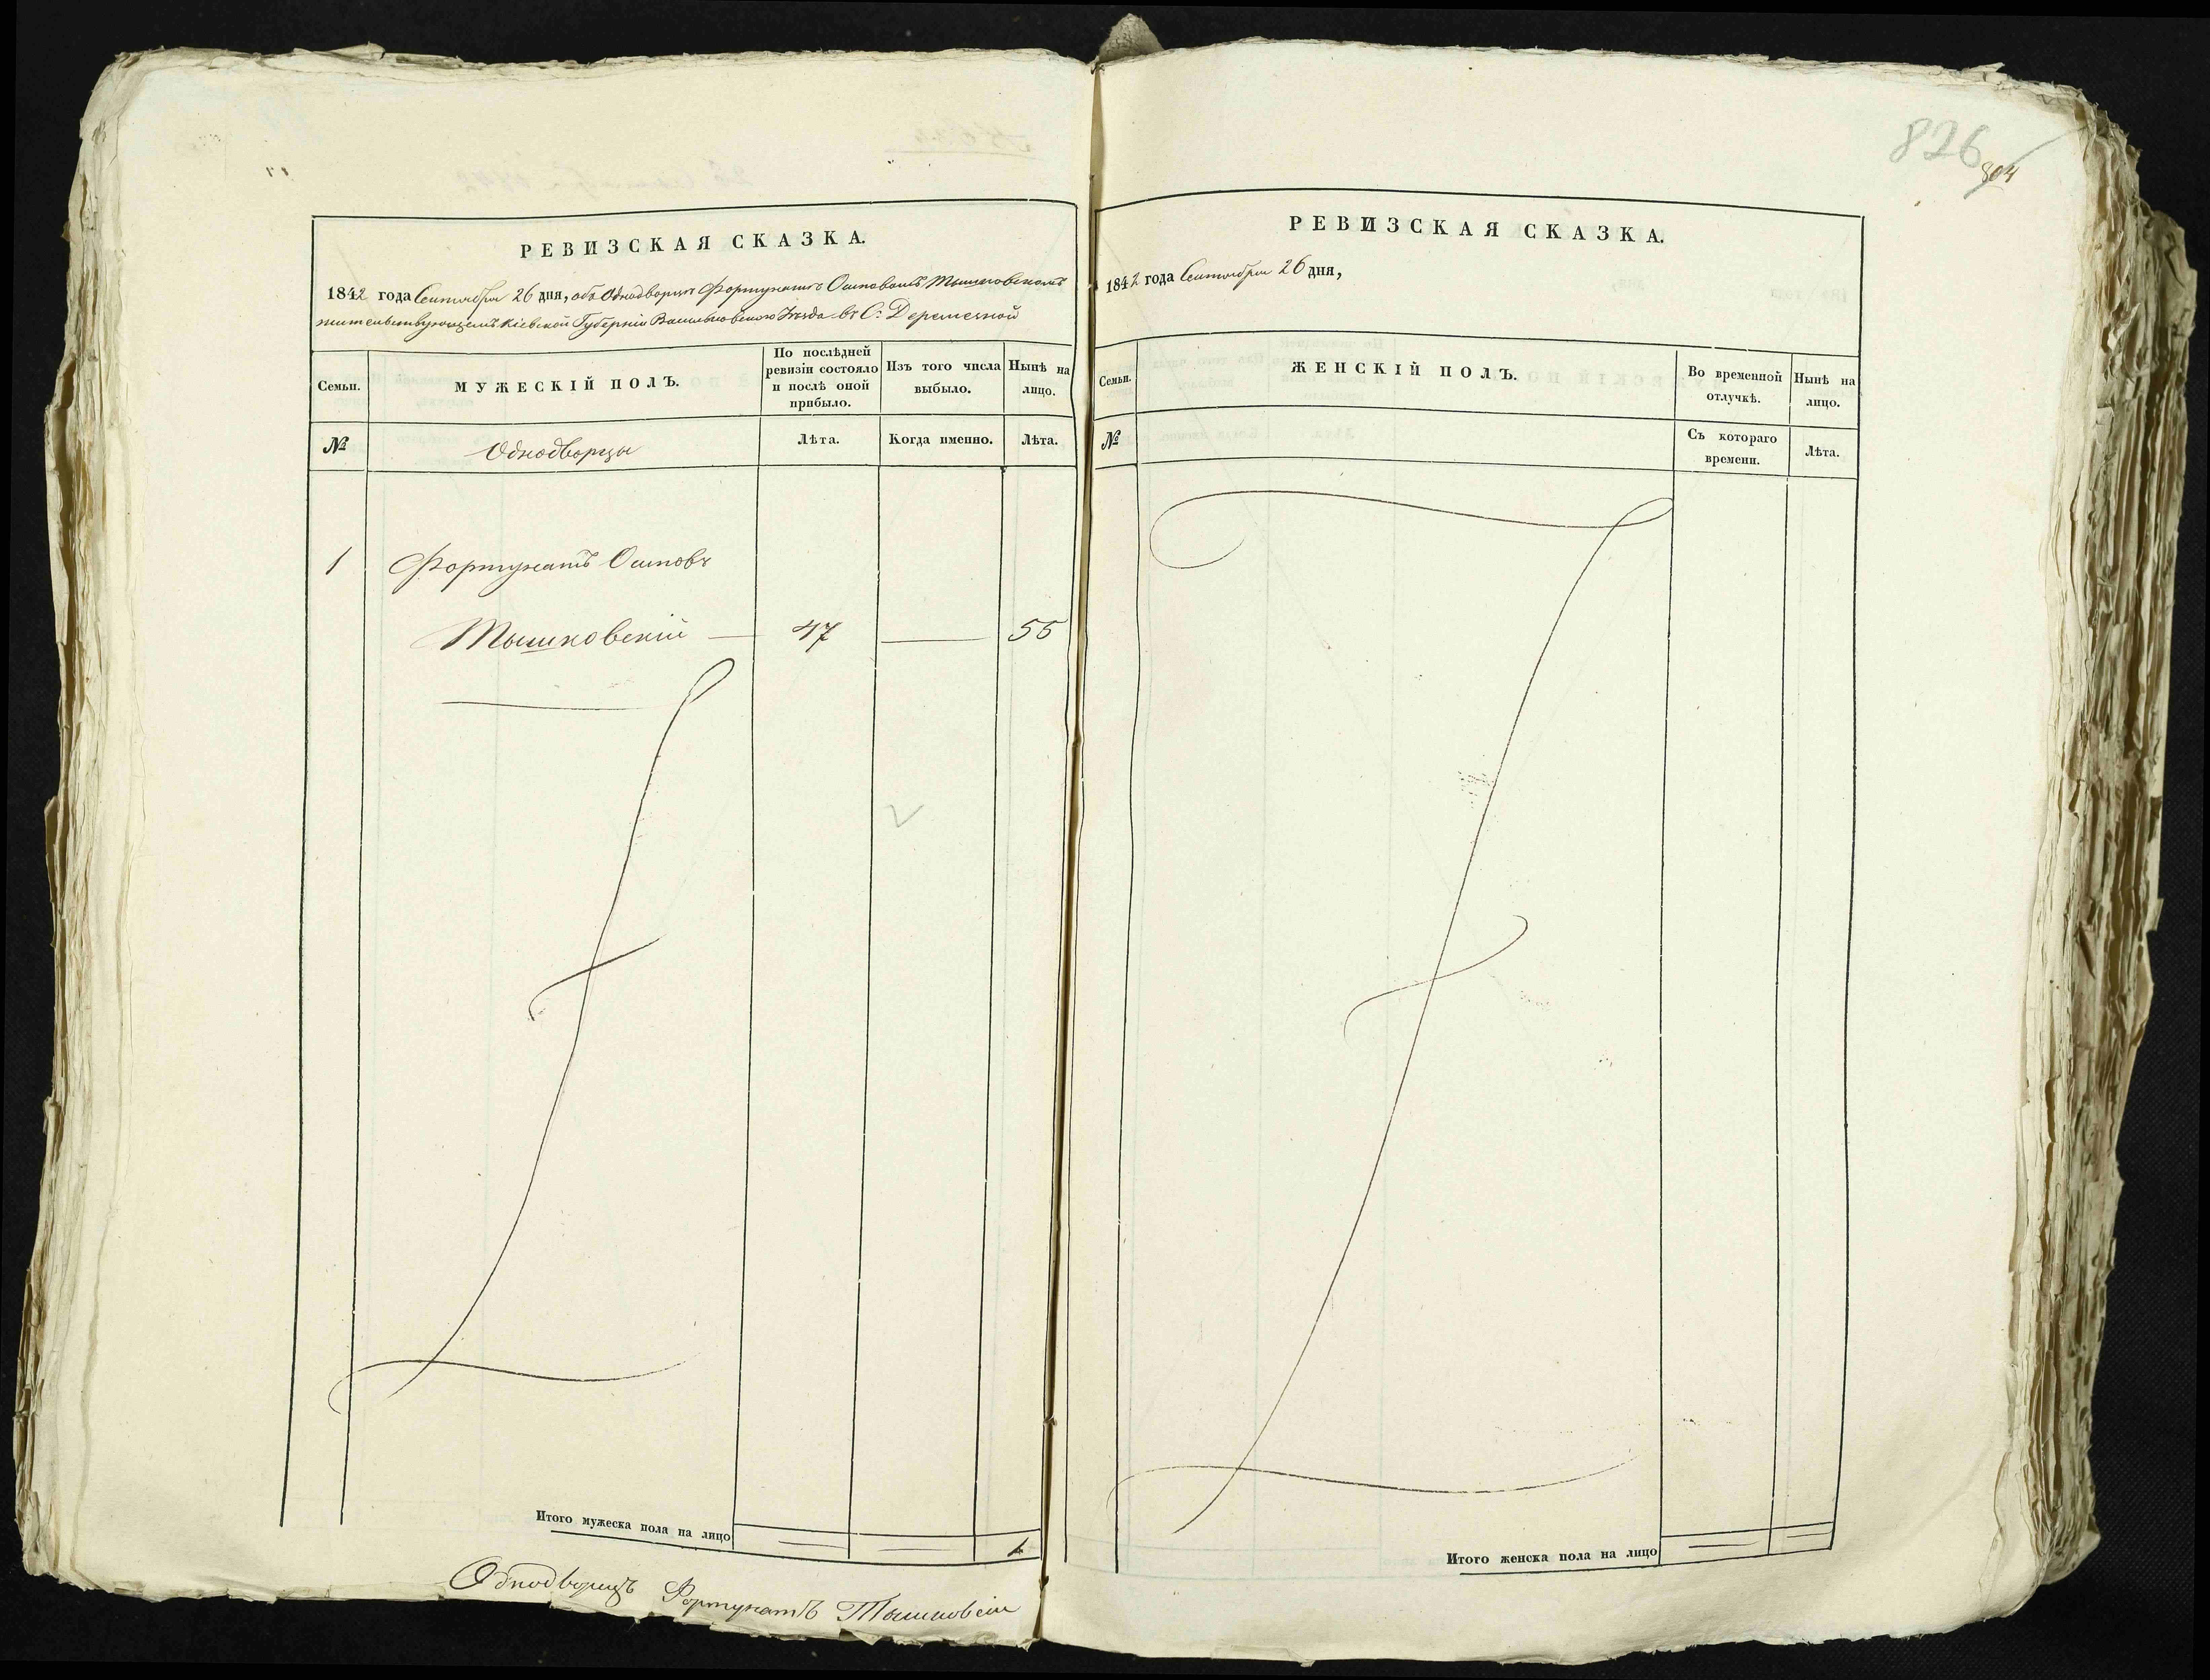 РЕВИЗСКАЯ СКАЗКА.
1842 года Сентября 26 дня, объ Однодворцѣ Фортунатѣ Осиповомъ Тышковскомъ
жительствующемъ Кіевской Губерніи Васильковскаго Уѣзда въ С. Деремезной
Семьи.
МУЖЕСКІЙ ПОЛЪ.
По послѣдней
ревизіи состояло
и послѣ оной
прибыло.
Изъ того числа
выбыло.
Нынѣ на
лицо.
№
Однодворцы
Лѣта.
Когда именно.
Лѣта.
1 Фортунатъ Осиповъ
Тышковскій — 47 — 55
Итого мужеска пола на лицо 1
Однодворецъ Фортунатъ Тышковскій
826
804
РЕВИЗСКАЯ СКАЗКА.
1842 года Сентября 26 дня,
Семьи.
ЖЕНСКІЙ ПОЛЪ.
Во временной
отлучкѣ.
Нынѣ на
лицо.
№
Съ котораго
времени.
Лѣта.
Итого женска пола на лицо